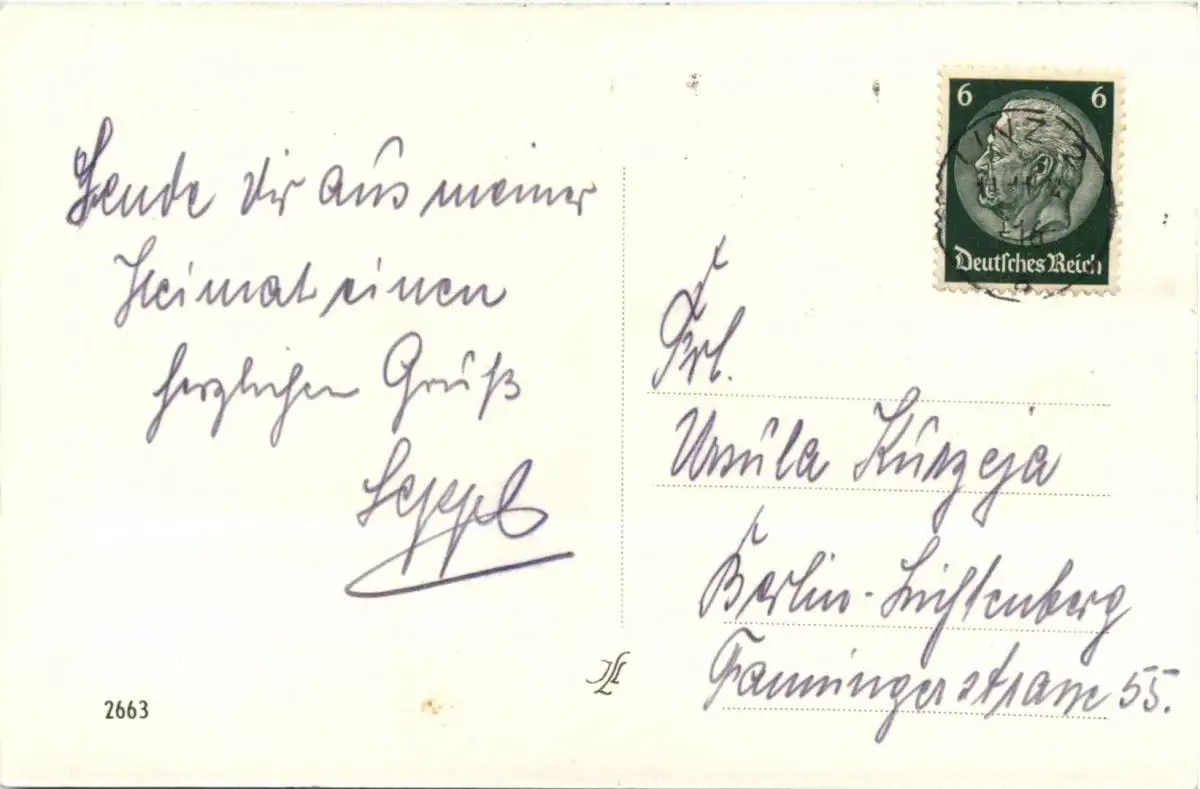 Sende Dir aus meiner
Heimat einen
herzlichen Gruß
Seppl
2663
6 6
Deutsches Reich
LINZ
Frl.
Ursula Kurzeja
Berlin-Lichtenberg
Fanningerstrasse 55.